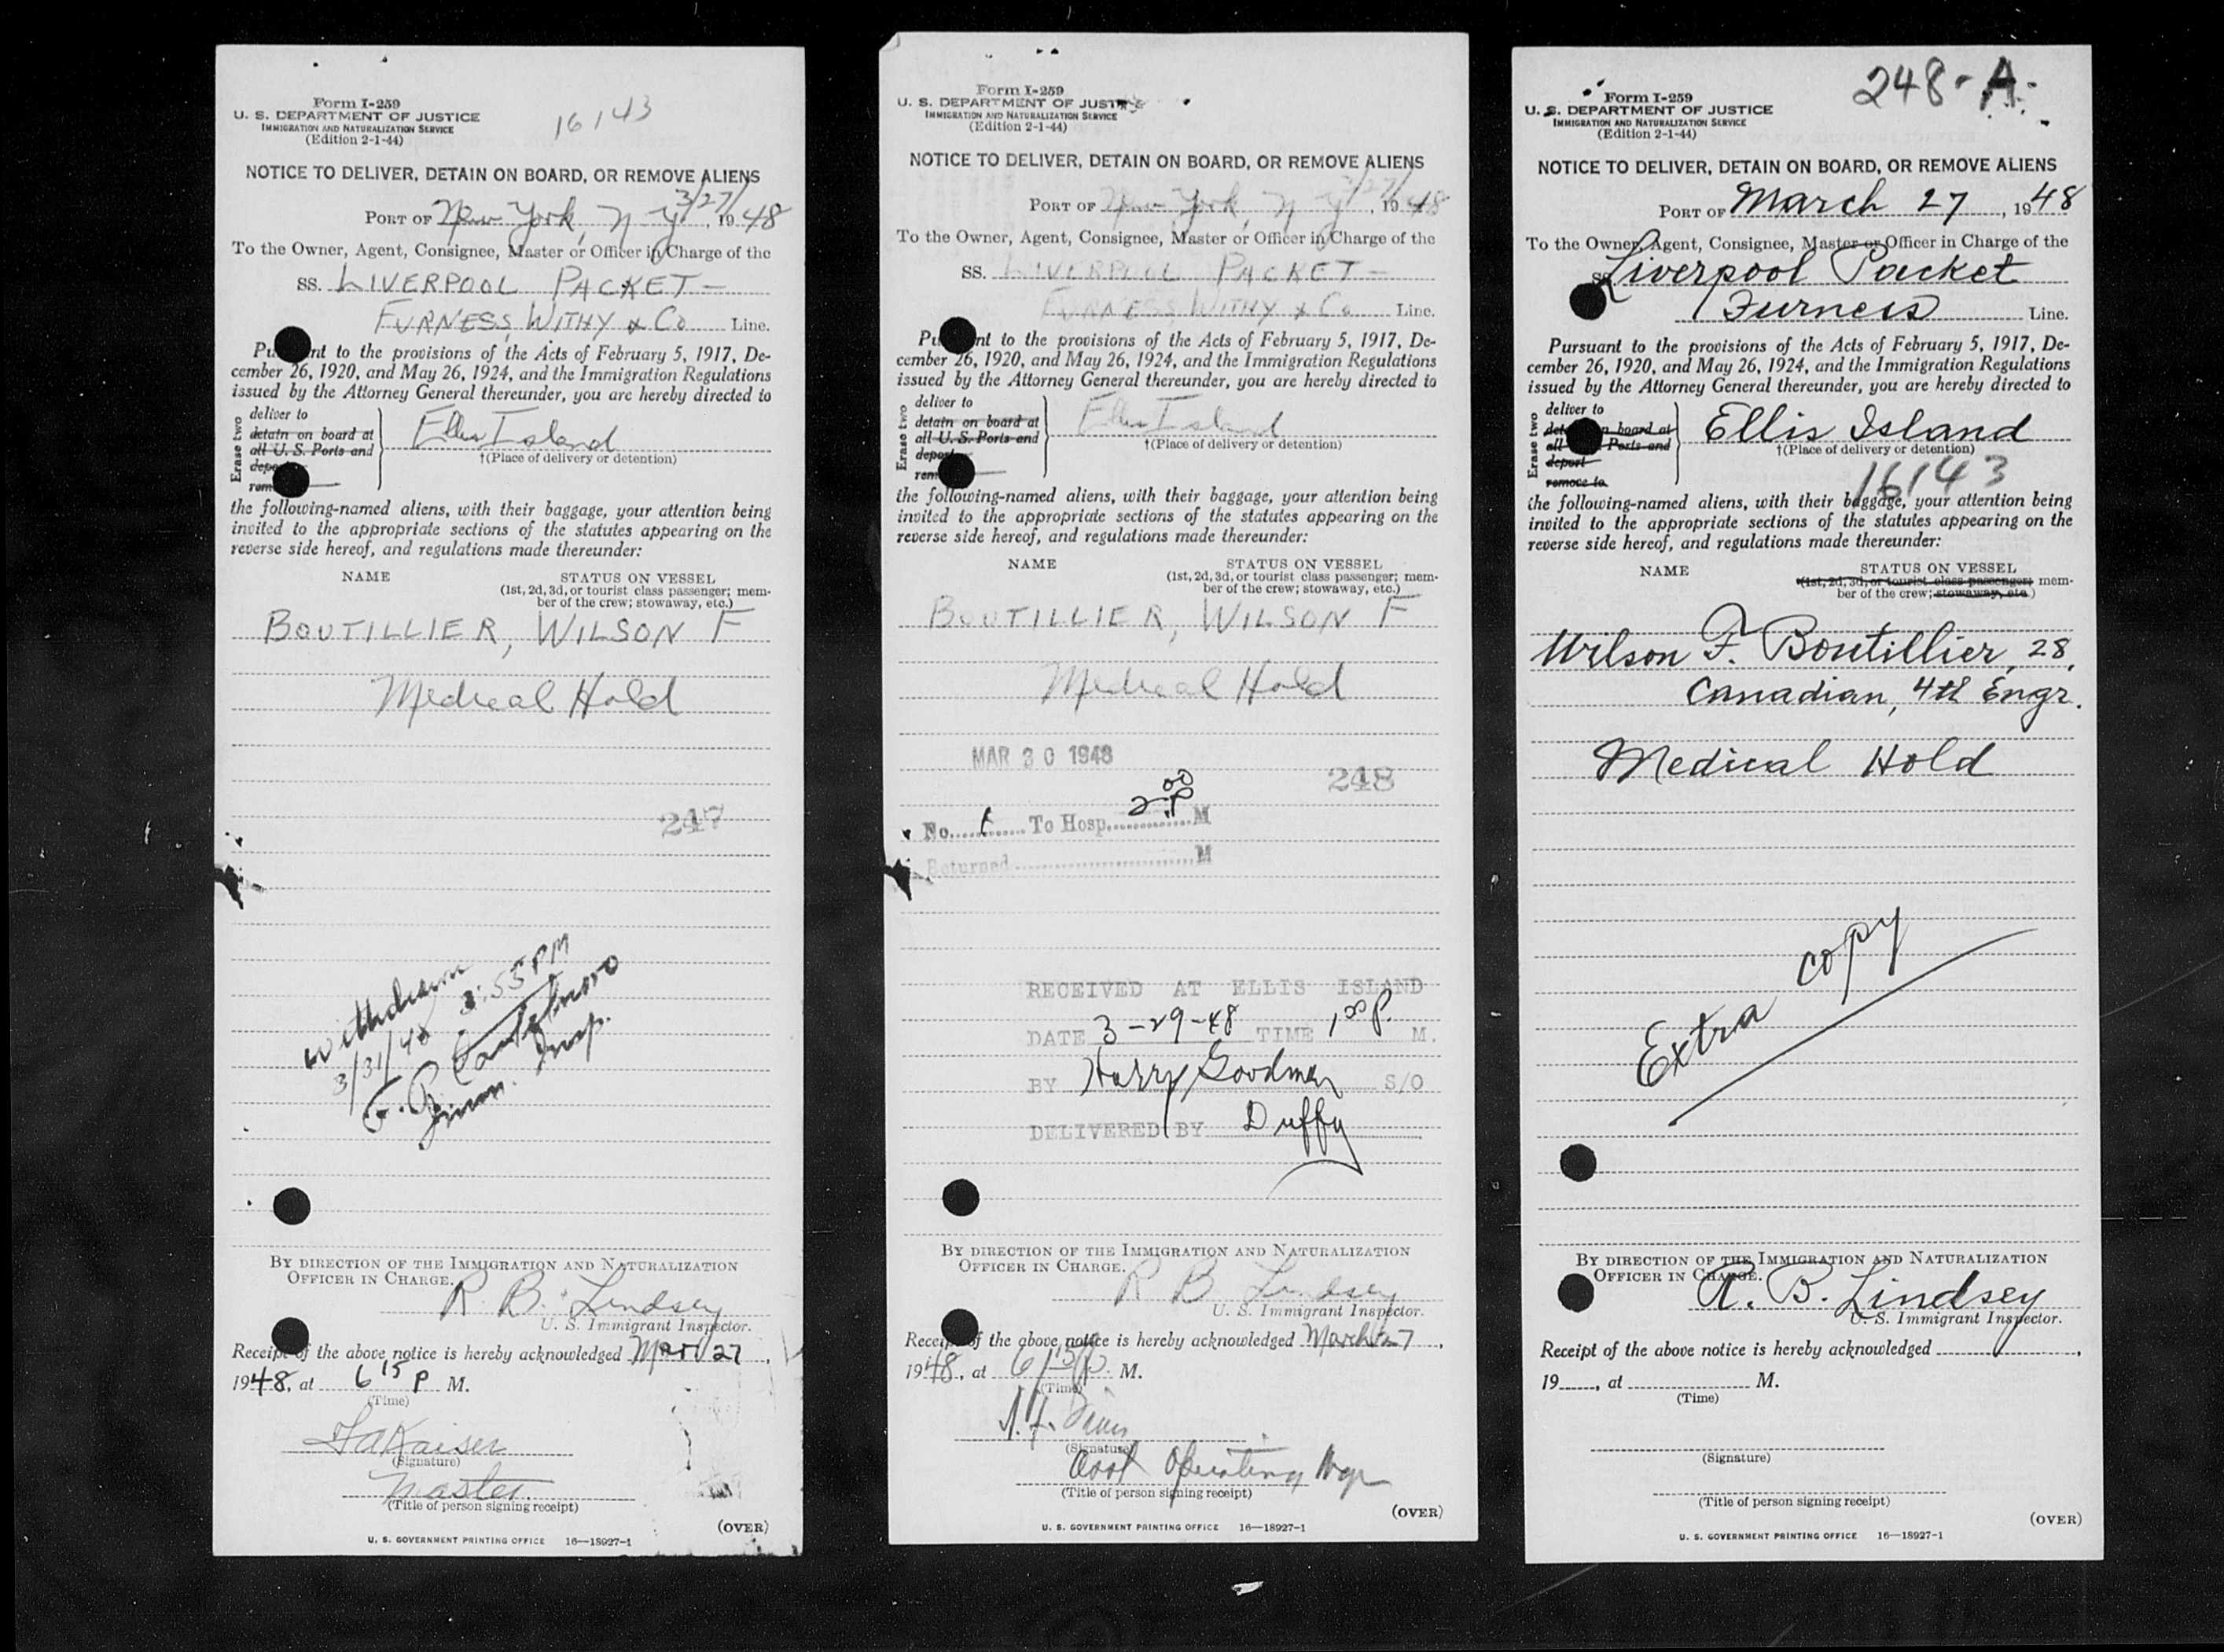 Form I-259
U. S. DEPARTMENT OF JUSTICE
IMMIGRATION AND NATURALIZATION SERVICE
(Edition 2-1-44)
16143
NOTICE TO DELIVER, DETAIN ON BOARD, OR REMOVE ALIENS
3/27/
PORT OF New York, N Y, 1948
To the Owner, Agent, Consignee, Master or Officer in Charge of the
SS. LIVERPOOL PACKET —
FURNESS, WITHY & Co Line.
Pu nt to the provisions of the Acts of February 5, 1917, De-
cember 26, 1920, and May 26, 1924, and the Immigration Regulations
issued by the Attorney General thereunder, you are hereby directed to
Erase two
deliver to
detain on board at
all U. S. Ports and
depor
rem
Ellis Island
†(Place of delivery or detention)
the following-named aliens, with their baggage, your attention being
invited to the appropriate sections of the statutes appearing on the
reverse side hereof, and regulations made thereunder:
NAME STATUS ON VESSEL
(1st, 2d, 3d, or tourist class passenger; mem-
ber of the crew; stowaway, etc.)
BOUTILLIER, WILSON F
Medical Hold
247
Withdrawn
3/31/48 3:55 PM
F. P.
Imm. Insp.
BY DIRECTION OF THE IMMIGRATION AND NATURALIZATION
OFFICER IN CHARGE.
R. B. Lindsey
U. S. Immigrant Inspector.
Receipt of the above notice is hereby acknowledged Mar 27,
1948, at 6 15 P M.
(Time)
Kaiser
(Signature)
Master
(Title of person signing receipt)
(OVER)
U. S. GOVERNMENT PRINTING OFFICE 16—18927-1
Form I-259
U. S. DEPARTMENT OF JUSTICE
IMMIGRATION AND NATURALIZATION SERVICE
(Edition 2-1-44)
NOTICE TO DELIVER, DETAIN ON BOARD, OR REMOVE ALIENS
3/27/
PORT OF New York, N Y, 1948
To the Owner, Agent, Consignee, Master or Officer in Charge of the
SS. LIVERPOOL PACKET —
FURNESS, WITHY & Co Line.
Pu nt to the provisions of the Acts of February 5, 1917, De-
cember 26, 1920, and May 26, 1924, and the Immigration Regulations
issued by the Attorney General thereunder, you are hereby directed to
Erase two
deliver to
detain on board at
all U. S. Ports and
depor
rem
Ellis Island
†(Place of delivery or detention)
the following-named aliens, with their baggage, your attention being
invited to the appropriate sections of the statutes appearing on the
reverse side hereof, and regulations made thereunder:
NAME STATUS ON VESSEL
(1st, 2d, 3d, or tourist class passenger; mem-
ber of the crew; stowaway, etc.)
BOUTILLIER, WILSON F
Medical Hold
MAR 30 1948
248
No. 1 To Hosp. 2 00 P M
Returned M
RECEIVED AT ELLIS ISLAND
DATE 3-29-48 TIME 1 00 P. M.
BY Harry Goodman S/O
DELIVERED BY Duffy
BY DIRECTION OF THE IMMIGRATION AND NATURALIZATION
OFFICER IN CHARGE.
R B Lindsey
U. S. Immigrant Inspector.
Receip of the above notice is hereby acknowledged March 27,
1948, at 6 15 P. M.
(Time)
(Signature)
Asst Operating Mgr
(Title of person signing receipt)
(OVER)
U. S. GOVERNMENT PRINTING OFFICE 16—18927-1
248-A-
Form I-259
U. S. DEPARTMENT OF JUSTICE
IMMIGRATION AND NATURALIZATION SERVICE
(Edition 2-1-44)
NOTICE TO DELIVER, DETAIN ON BOARD, OR REMOVE ALIENS
PORT OF March 27, 1948
To the Owner, Agent, Consignee, Master or Officer in Charge of the
SS. Liverpool Packet
Furness Line.
Pursuant to the provisions of the Acts of February 5, 1917, De-
cember 26, 1920, and May 26, 1924, and the Immigration Regulations
issued by the Attorney General thereunder, you are hereby directed to
Erase two
deliver to
det n board at
all Ports and
deport
remove to
Ellis Island
†(Place of delivery or detention)
16143
the following-named aliens, with their baggage, your attention being
invited to the appropriate sections of the statutes appearing on the
reverse side hereof, and regulations made thereunder:
NAME STATUS ON VESSEL
(1st, 2d, 3d, or tourist class passenger; mem-
ber of the crew; stowaway, etc.)
Wilson F. Boutillier, 28,
Canadian, 4th Engr.
Medical Hold
Extra copy
BY DIRECTION OF THE IMMIGRATION AND NATURALIZATION
OFFICER IN CHARGE.
R. B. Lindsey
U. S. Immigrant Inspector.
Receipt of the above notice is hereby acknowledged ,
19 , at M.
(Time)
(Signature)
(Title of person signing receipt)
(OVER)
U. S. GOVERNMENT PRINTING OFFICE 16—18927-1